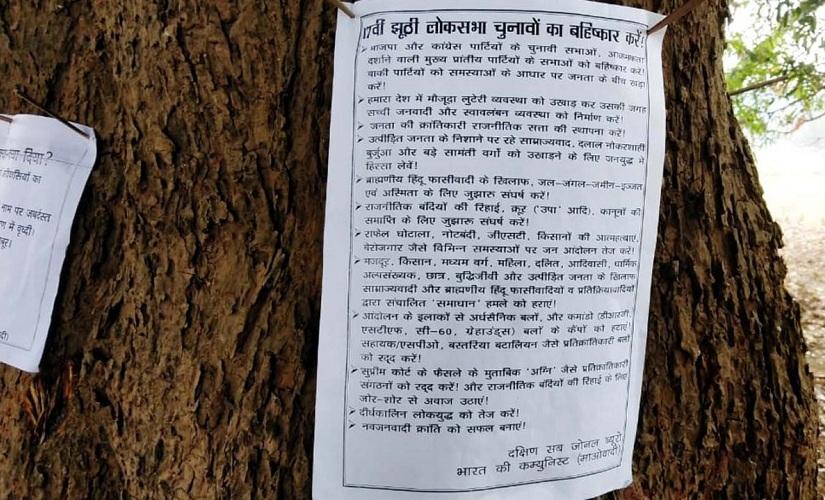 व्या दिया?
नाम पर जबर्दस्त
17वीं झूठी लोकसभा चुनावों का बहिष्कार करें!
➢ भाजपा और कांग्रेस पार्टियों के चुनावी सभाओं, आक्रमकता
दर्शाने वाली मुख्य प्रांतीय पार्टियों के सभाओं को बहिष्कार करें!
बाकी पार्टियों को समस्याओं के आधार पर जनता के बीच खड़ा
करें!
➢ हमारा देश में मौजूदा लुटेरी व्यवस्था को उखाड़ कर उसकी जगह
सच्ची जनवादी और स्वावलंबन व्यवस्था को निर्माण करें!
➢ जनता की क्रांतिकारी राजनीतिक सत्ता की स्थापना करें!
➢ उत्पीड़ित जनता के निशाने पर रहे साम्राज्यवाद, दलाल नोकरशाही
बुर्जुआ और बड़े सामंती वर्गो को उखाड़ने के लिए जनयुद्ध में
हिस्सा लेवें!
➢ ब्राह्मणीय हिंदू फासीवादी के खिलाफ, जल-जंगल-जमीन-इज्जत
एवं अस्मिता के लिए जुझारू संघर्ष करें!
➢ राजनीतिक बंदियों की रिहाई, क्रूर ('उपा' आदि), कानूनों की
समाप्ति के लिए जुझारू संघर्ष करें!
➢ राफेल घोटाला, नोटबंदी, जीएसटी, किसानों की आत्महत्याएं,
बेरोजगार जैसे विभिन्न समस्याओं पर जन आंदोलन तेज करें!
➢ मजदूर, किसान, मध्यम वर्ग, महिला, दलित, आदिवासी, धार्मिक
अल्पसंख्यक, छात्र, बुद्धिजीवी और उत्पीड़ित जनता के खिलाफ
साम्राज्यवादी और ब्राह्मणीय हिंदू फासीवादियों व प्रतिक्रियावादियों
द्वारा संचालित 'समाधान' हमले को हराएं!
➢ आंदोलन के इलाकों से अर्धसैनिक बलों, और कमांडो (डीआरजी,
एसटीएफ, सी-60, ग्रेहाउंड्स) बलों के कैंपों को हटाएं!
सहायक/एसपीओ, बस्तरिया बटालियन जैसे प्रतिक्रांतिकारी बलों
को रद्द करें!
➢ सुप्रीम कोर्ट के फैसले के मुताबिक 'अग्नि' जैसे प्रतिक्रांतिकारी
संगठनों को रद्द करें! और राजनीतिक बंदियों की रिहाई के लिए
जोर-शोर से अवाज उठाएं!
➢ दीर्घकालिन लोकयुद्ध को तेज करें!
➢ नवजनवादी क्रांति को सफल बनाएं!
दक्षिण सब जोनल ब्यूरो
भारत की कम्युनिस्ट (माओवादी)